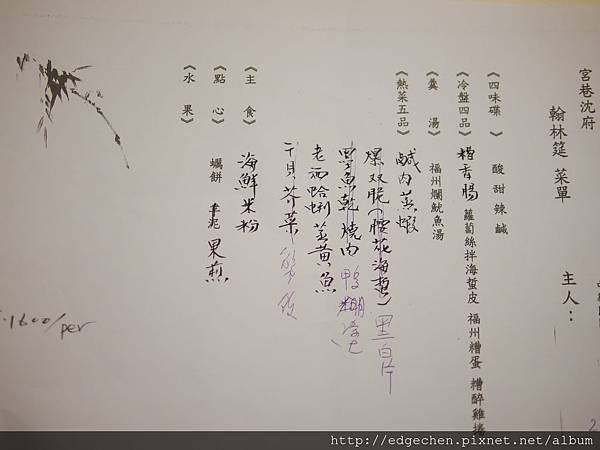 宮巷沈府
翰林筵 菜單
主人：
《四味碟》 酸 甜 辣 鹹
《冷盤四品》 糟香腸 蘿蔔絲拌海蜇皮 福州糟蛋 糟醉雞捲
《羹 湯》 福州爛魷魚湯
《熱菜五品》 鹹肉蒸蝦
爆双脆(腰花海蜇) 黑白片
墨魚乾燒肉 鴨
老酒蛤蜊蒸黃魚
干貝芥菜
《主 食》 海鮮米粉
《點 心》 蠣餅 芋泥 果煎
《水 果》
1600/per
http://edgechen.pixnet.net/album